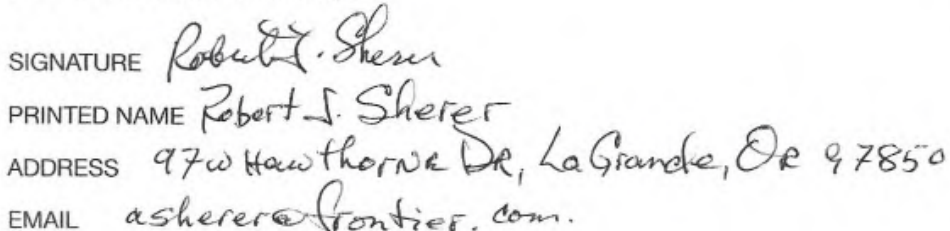 SIGNATURE Robert J. Sherer
PRINTED NAME Robert J. Sherer
ADDRESS 97w Hawthorne DR, La Grande, OR 97850
EMAIL asherer@frontier.com.